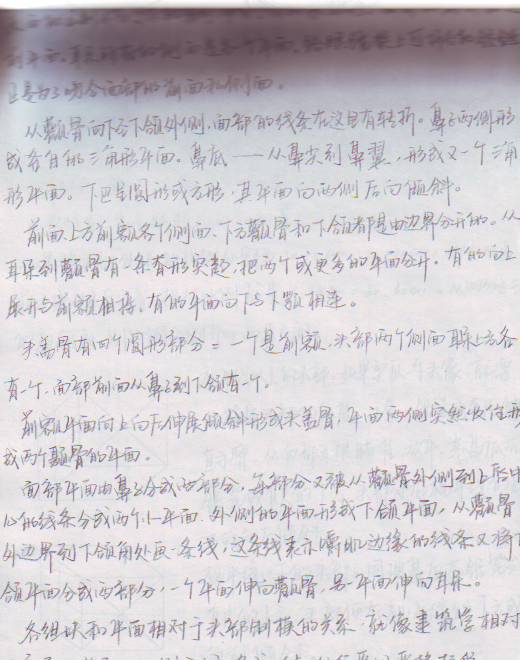 的平面。耳朵前面的侧面是各个平面。
是为了吻合面部的前面和侧面。
从颧骨向下至下颌外侧，面部的线条在这里有转折。鼻子两侧形
成各自的三角形平面。鼻底——从鼻尖到鼻翼，形成又一个三角
形平面。下巴呈圆形或方形，其平面向两侧后向倾斜。
前面上方前额各个侧面、下方颧骨和下颌都是由边界分开的。从
耳朵到颧骨有一条脊形突起，把两个或更多的平面分开。有的向上
展开与前额相接，有的平面向下与下颚相连。
头盖骨有四个圆形部分：一个是前额，头部两个侧面耳朵上方各
有一个，面部前面从鼻子到下颌有一个。
前额平面向上向后伸展倾斜形成头盖骨，平面两侧突然收住形
成两个颞骨的平面。
面部平面由鼻子分成两部分，每部分又被从颧骨外侧到上唇中
心的线条分成两个小平面。外侧的平面形成下颌平面，从颧骨
外边界到下颌角处画一条线，这条线表示嚼肌边缘的线条又将下
颌平面分成两部分，一个平面伸向颧骨，另一平面伸向耳朵。
各组块和平面相对于头部制模的关系，就像建筑学相对